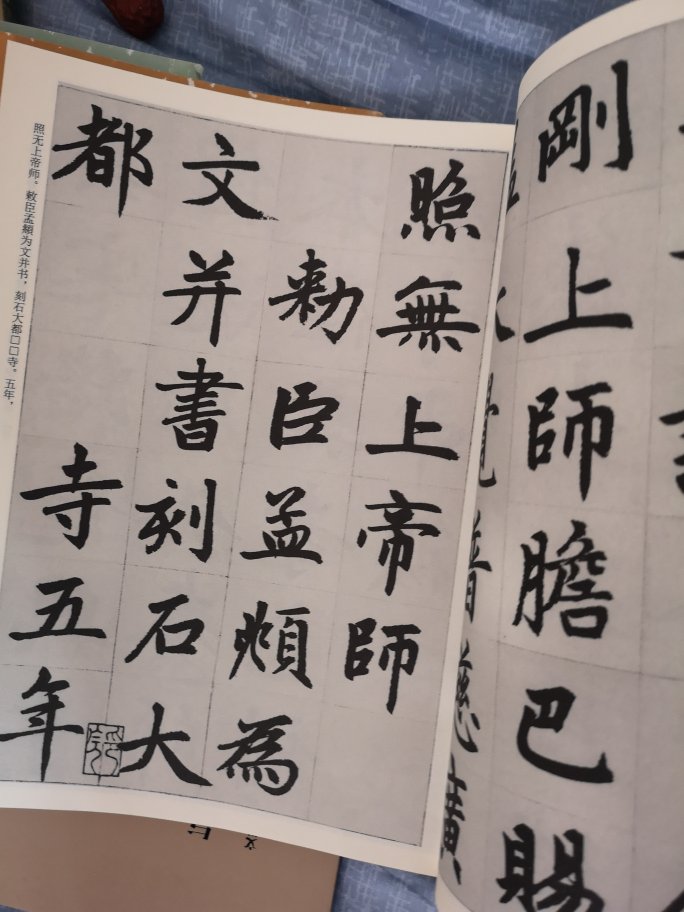 剛上師膽巴賜
照無上帝師
勅臣孟頫為
文并書刻石大
都寺五年
照无上帝师。敕臣孟頫为文并书，刻石大都□□寺。五年，